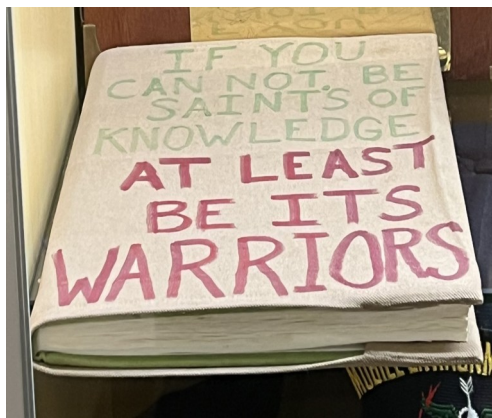 IF YOU
CAN NOT BE
SAINT'S OF
KNOWLEDGE
AT LEAST
BE ITS
WARRIORS